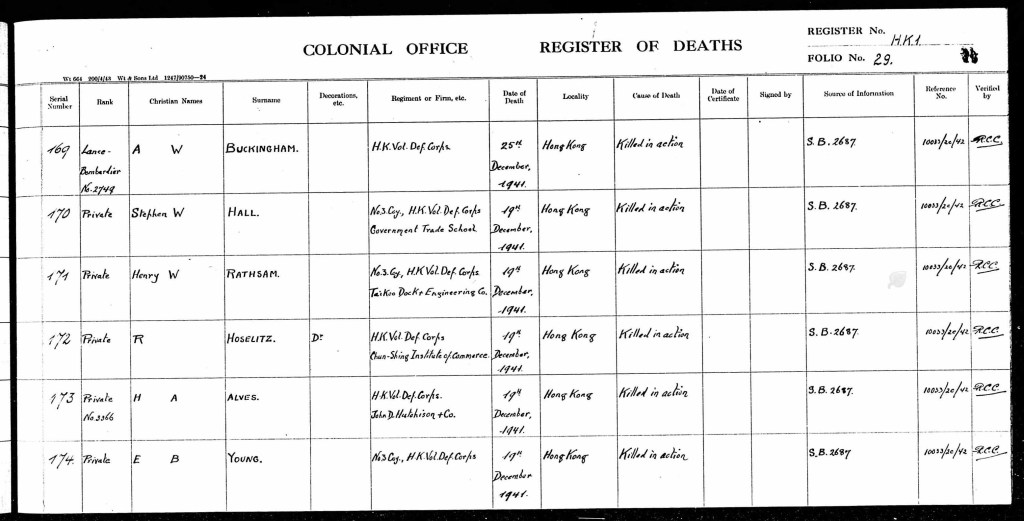 COLONIAL OFFICE REGISTER OF DEATHS
REGISTER No. H.K.1.
FOLIO No. 29.
Wt 664 200/4/43 Wt & Sons Ltd 1247/90750—24
Serial Number Rank Christian Names Surname Decorations, etc. Regiment or Firm, etc. Date of Death Locality Cause of Death Date of Certificate Signed by Source of Information Reference No. Verified by
169 Lance- A W BUCKINGHAM. H.K.Vol. Def. Corps. 25th Hong Kong Killed in action S.B. 2687. 10033/20/42
Bombardier December,
No.2749 1941.
170 Private Stephen W HALL. No3. Coy., H.K. Vol. Def. Corps 19th Hong Kong Killed in action S.B. 2687. 10033/20/42
Government Trade School. December,
1941.
171 Private Henry W RATHSAM. No.3. Coy, H.K. Vol. Def. Corps 19th Hong Kong Killed in action S.B. 2687. 10033/20/42
Taikoo Dock & Engineering Co. December,
1941.
172 Private R HOSELITZ. Dr H.K. Vol. Def. Corps 19th Hong Kong Killed in action S.B. 2687. 10033/20/42
Chun-Shing Institute of Commerce. December,
1941.
173 Private H A ALVES. H.K. Vol. Def. Corps. 19th Hong Kong Killed in action S.B. 2687. 10033/20/42
No.3366 John D. Hutchison & Co. December,
1941.
174. Private E B YOUNG. No3 Coy., H.K. Vol. Def. Corps 19th Hong Kong Killed in action S.B. 2687 10033/20/42
December
1941.